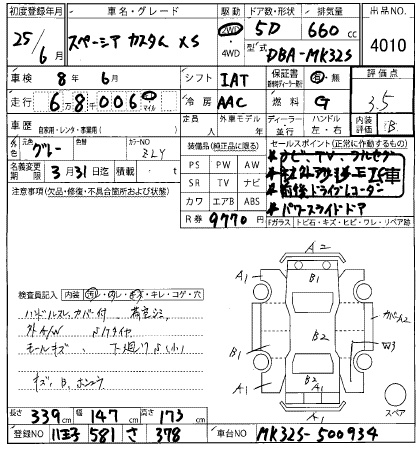 初度登録年月 車名・グレード 駆動 ドア数・形状 排気量 出品NO.
25年6月 スペーシア カスタム XS 2WD 4WD 5D 660cc 4010
型式 DBA-MK32S
車検 8年6月 シフト IAT 保証書 有・無 評価点
走行 68千006 マイル 冷房 AAC 燃料 G 3.5
車歴 自家用・レンタ・事業用( ) 定員 人 外車モデル 年 ディーラー・並行 ハンドル 左・右 内装評価 B
外色 元色 グレー 色替 カラーNO ZLY
装備品(純正品に限る) セールスポイント(正常に作動するもの)
名義変更期限 3月31日迄 積載 ・ t
PS PW AW
SR TV ナビ
カワ エアB ABS
R券 9770円
*ナビ、TV、フルセグ
*前後ドライブレコーダー
*パワースライドドア
注意事項(欠品・修復・不具合箇所およびその他)
Fガラス トビ石・キズ・ヒビ・ワレ・リペア跡
検査員記入 内装 汚レ・ヤレ・キズ・キレ・コゲ・穴
ハンドルスレ、カバー付
外A/W
モールキズ
キズ、B、
A2
A1 B1 A1
B2 カバーA2
B1 W3
A1 B2 A1 A1
A1
スペア
長さ 339cm 幅 147cm 高さ 173cm
登録NO 八王子 581 さ 378 車台NO MK32S-500934